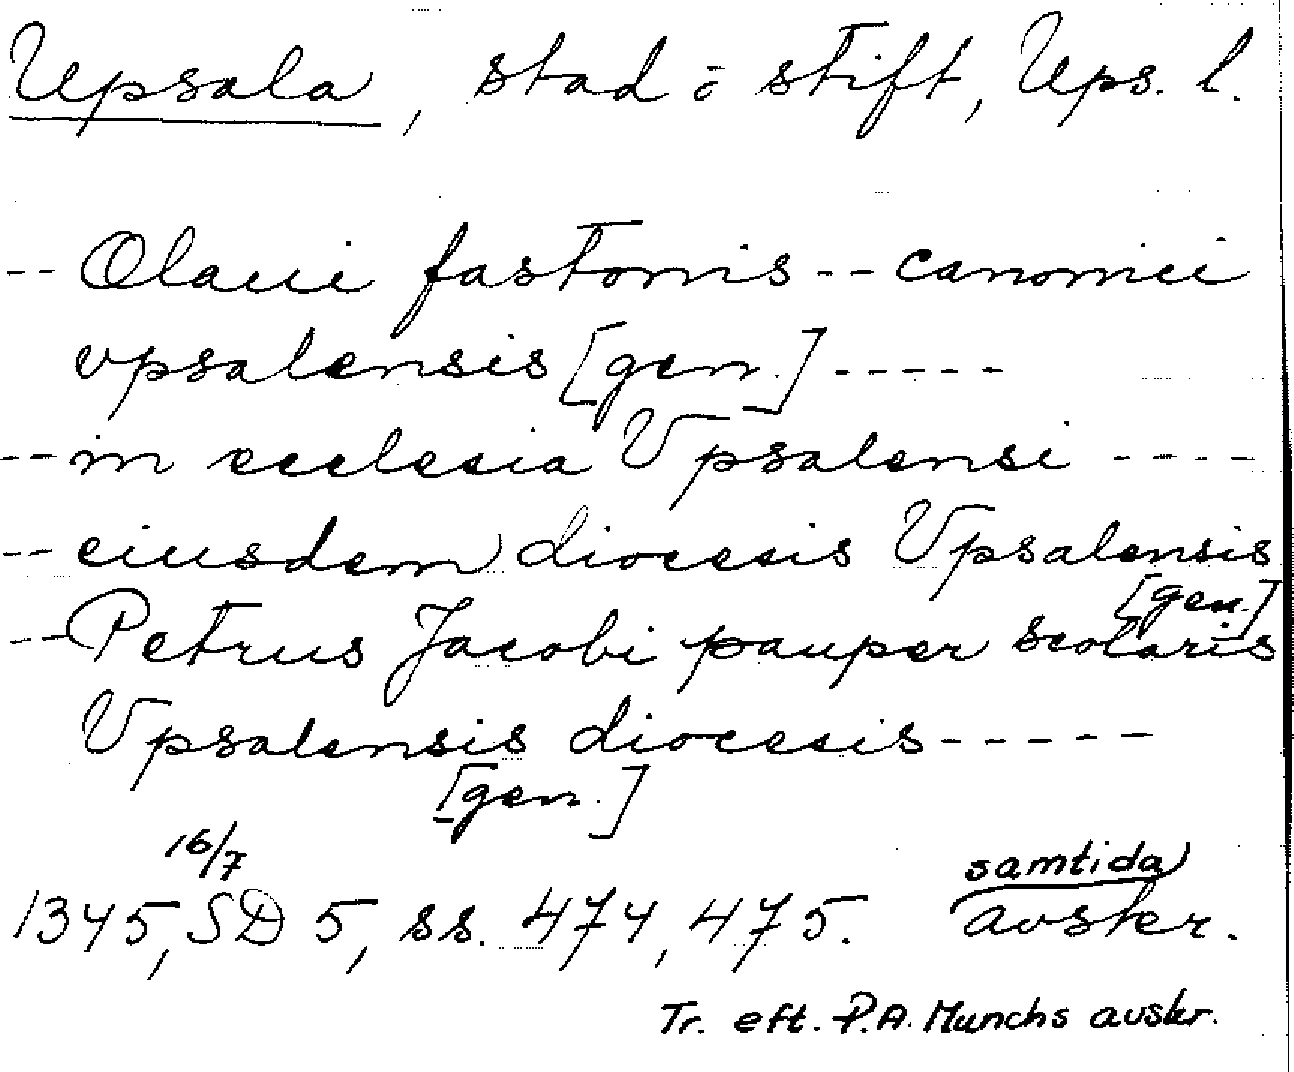 Upsala, stad o stift, Ups. l.
-- Olaui fastonis -- canonici
vpsalensis [gen.] -----
-- in ecclesia Vpsalensi ----
-- eiusdem diocesis Vpsalensis
[gen.]
-- Petrus Jacobi pauper scolaris
Vpsalensis diocesis -----
[gen.]
16/7
1345, SD 5, ss. 474, 475. samtida
avskr.
Tr. eft. P.A. Munchs avskr.